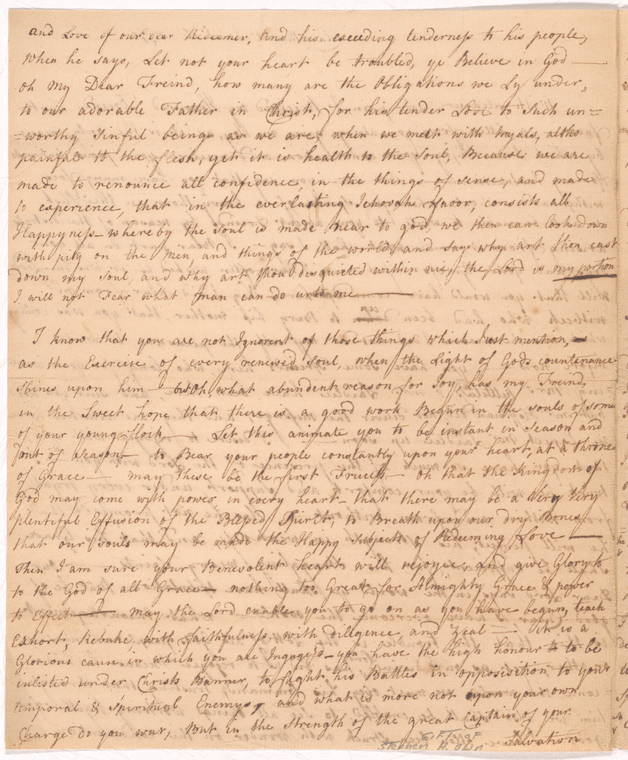 and Love of our dear Redeemer, and his exceeding tenderness to his people,
When he says, Let not your heart be troubled, ye Believe in God —
oh My Dear Freind, how many are the Obligations we Ly under,
to our adorable Father in Christ, for his tender Love to Such un=
=worthy Sinful beings as we are, when we meet with tryals, altho
painful to the flesh, yet it is health to the Soul, Because we are
made to renounce all confidence, in the things of sense, and made
to experience, that in the everlasting Jehovahs favor, consists all
Happyness — whereby the Soul is made near to god, we then can look down
with pity on the Men, and things of the world, and say why art thou cast
down my Soul, and why art thou desquieted within me, the Lord is my portion
I will not Fear what man can do unto me —
I know that you are not Ignorent of those things which Just mention, —
as the Exercise of every renewed Soul, when the Light of Gods countenance
Shines upon him — but oh what abundent reason for Joy, has my Freind,
in the Sweet hope that there is a good work Begun in the Souls of som
of your young flock, — Let this animate you to be instant in Season and
out of Season — to Bear your people constantly upon your heart, at a throne
of Grace — may these be the first Fruits — oh that the Kingdom of
God may come with power in every heart — that there may be a Very Very
plentiful Effusion of the Blessed Spirit, to Breath upon our dry Bones
that our Souls may be made the Happy Subjects of Redeeming Love —
Then I am sure your Benevolent heart will rejoyce, and give Glory to
to the God of all Grace — nothing too Great for Almighty Grace & power
to Effect — may the Lord enable you to go on as you have begun, teach
Exhort, Rebuke with faithfulness, with dillgence, and Zeal — it is a
Glorious cause in which you are Ingaged — you have the high honour to be
inlisted under Christs Banner, to fight his Battles in opposition to your
temporal & Spiritual Enemys, and what is more not upon your own
Charge do you war, But in the Strength of the great Captain of your
Salvation
Stephen H. Olin